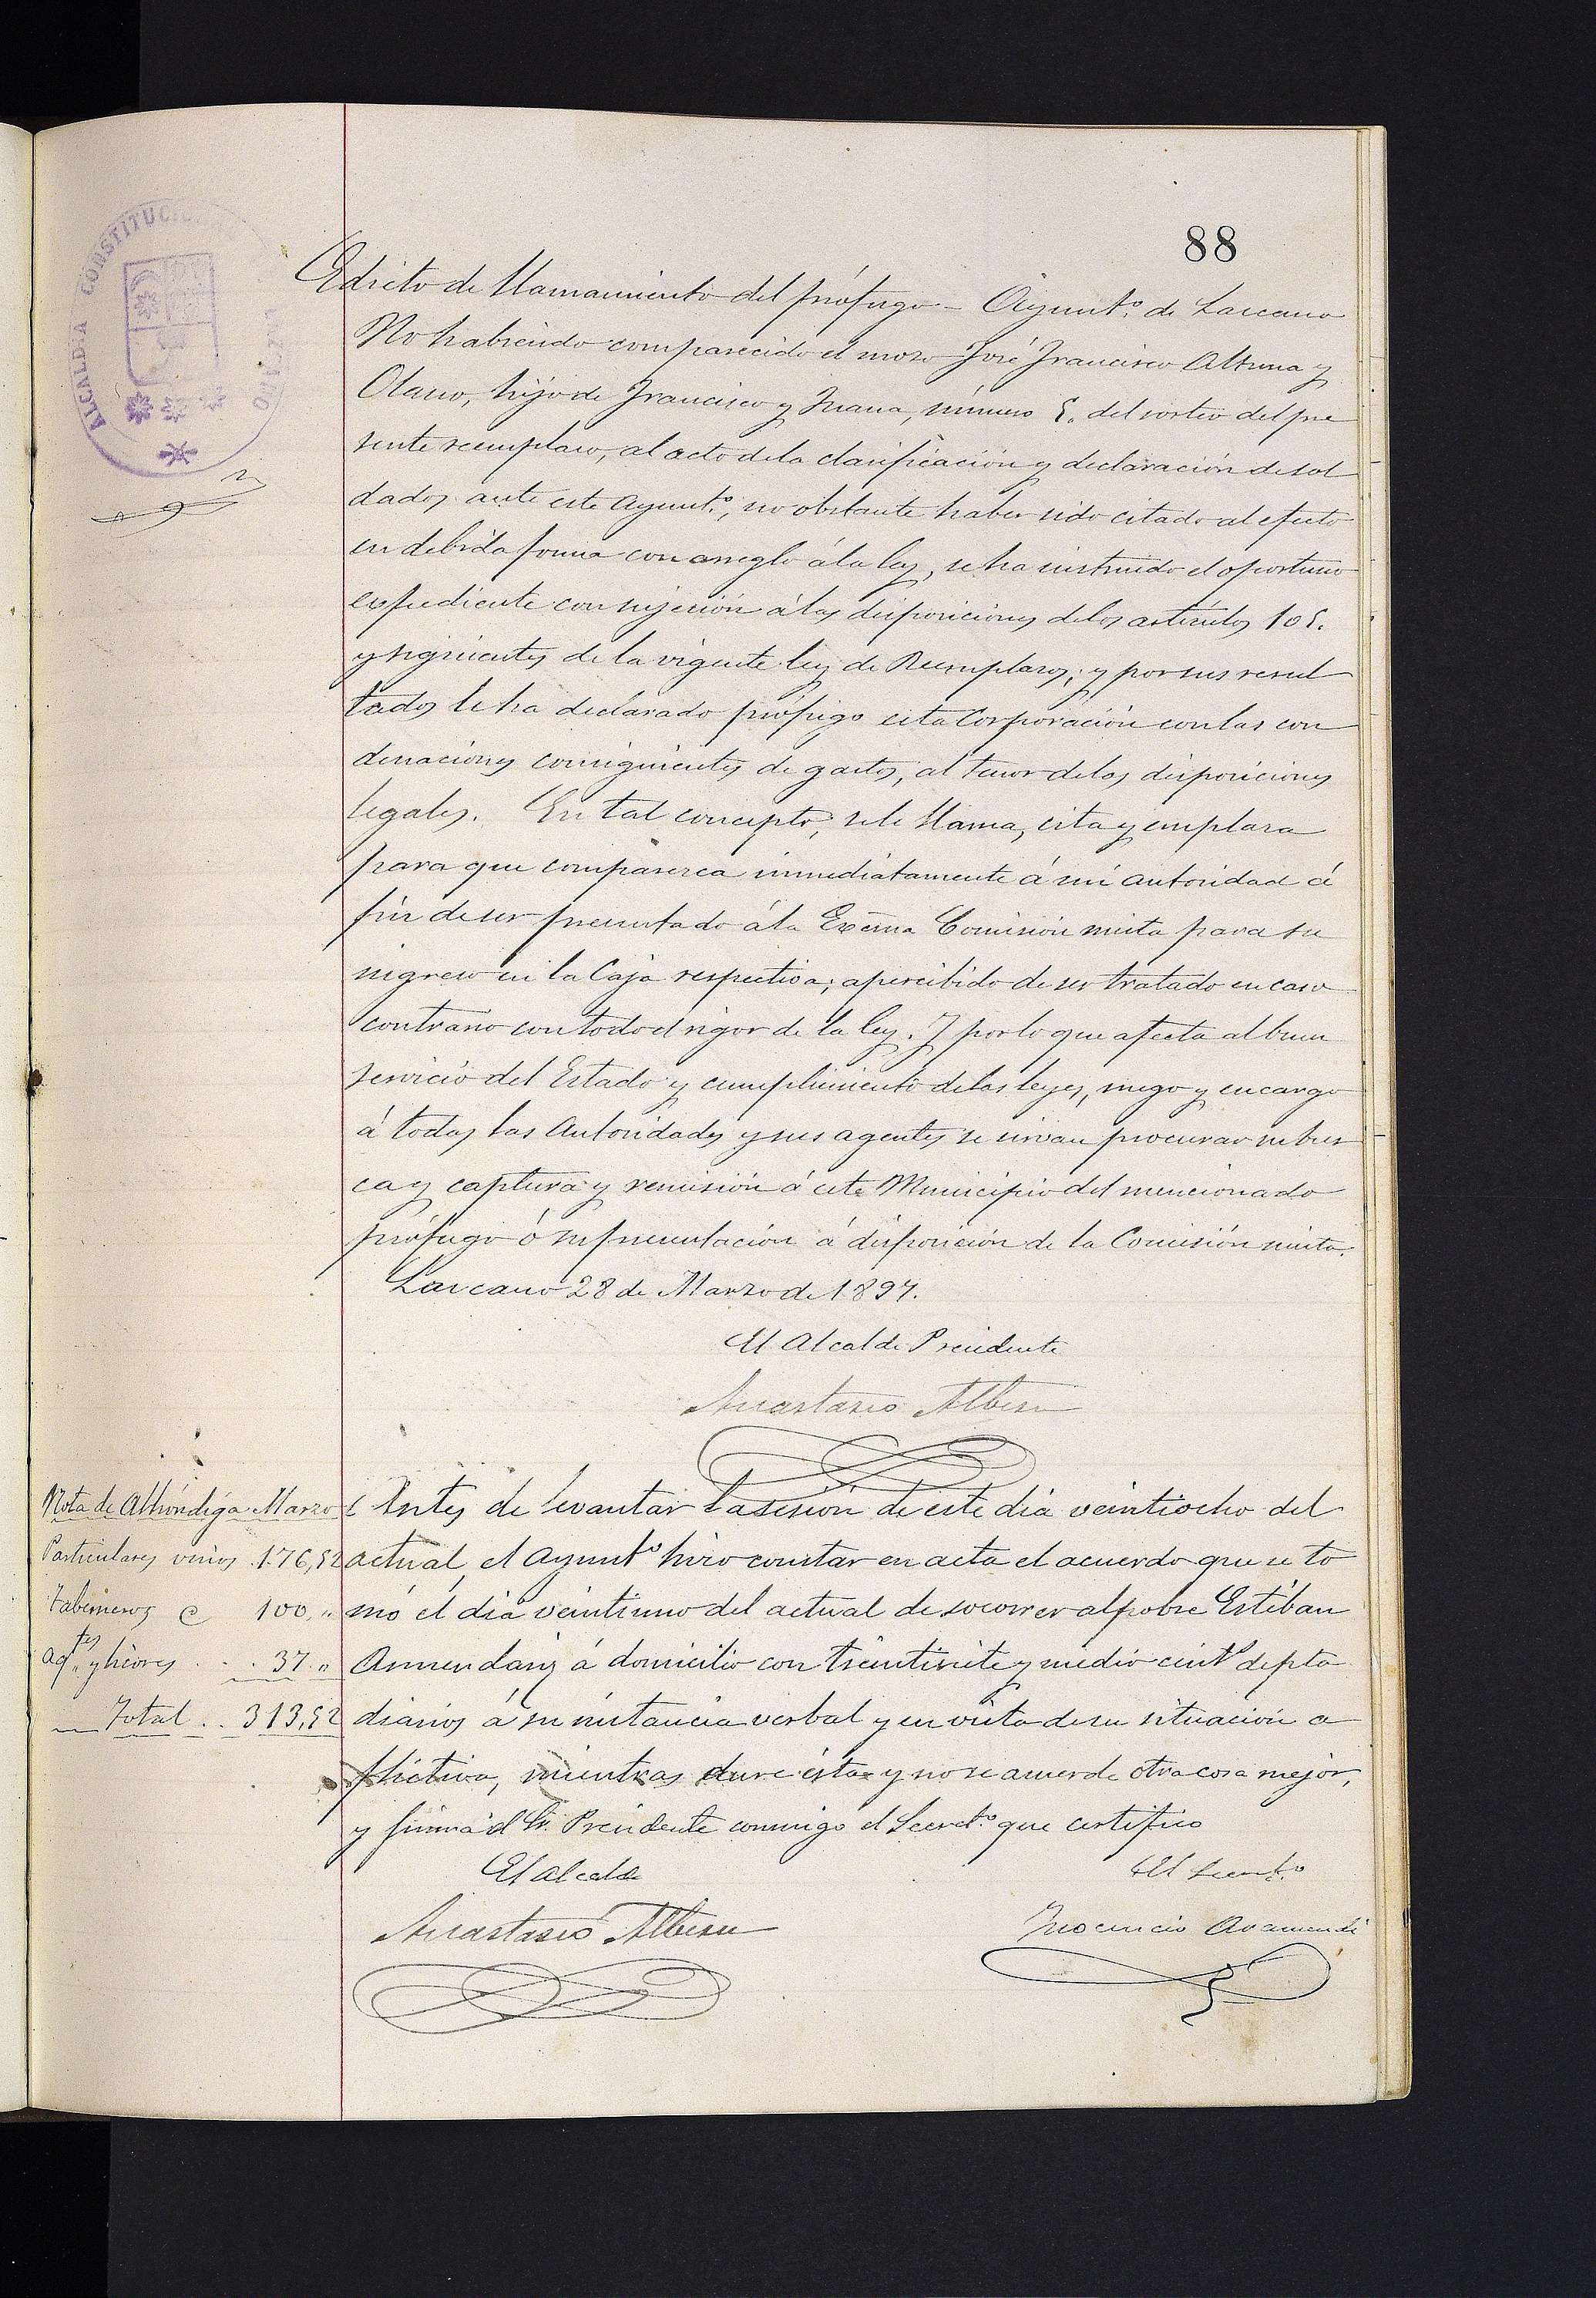 88
ALCALDIA CONSTITUCIONAL
Edicto de llamamiento del prófugo - Ayunt.º de Lazcano
No habiendo comparecido el mozo José Francisco Altuna y
Olano, hijo de Francisco y Juana, número 5. del sorteo del pre
sente reemplazo, al acto de la clasificación y declaración de sol
dados ante este Ayunt.º, no obstante haber sido citado al efecto
en debida forma con arreglo á la ley, se ha instruido el oportuno
expediente con sujeción á las disposiciones de los artículos 105.
y siguientes de la vigente ley de Reemplazos; y por sus resul
tados le ha declarado prófugo esta Corporación con las con
denaciones consiguientes de gastos, al tenor de las disposiciones
legales. En tal concepto, se le llama, cita y emplaza
para que comparezca inmediatamente á mi autoridad á
fin de ser presentado á la Excma Comisión mixta para su
ingreso en la Caja respectiva; apercibido de ser tratado en caso
contrario con todo el rigor de la ley. Y por lo que afecta al buen
servicio del Estado y cumplimiento de las leyes, ruego y encargo
á todas las Autoridades y sus agentes se sirvan procurar su bus
ca y captura y remisión á este Municipio del mencionado
prófugo ó su presentación á disposición de la Comisión mixta.
Lazcano 28 de Marzo de 1897.
El Alcalde Presidente
Anastasio Albisu
Nota de Alhóndiga Marzo
Particulares vinos 176,52
Taberneros 100,"
Ag.tes y licores . . 37."
Total . . 313,52
Antes de levantar la sesión de este dia veintiocho del
actual, el Ayunt.º hizo constar en acta el acuerdo que se to
mó el dia veintiuno del actual de socorrer al pobre Estéban
Armendariz á domicilio con treintisiete y medio cént.s de pta
diarios á su instancia verbal y en vista de su situación a
flictiva, mientras dure ésta y no se acuerde otra cosa mejor,
y firma el Sr. Presidente conmigo el Secret.º que certifico
El Alcalde
El Secret.º
Anastasio Albisu
Inocencio Aramendi